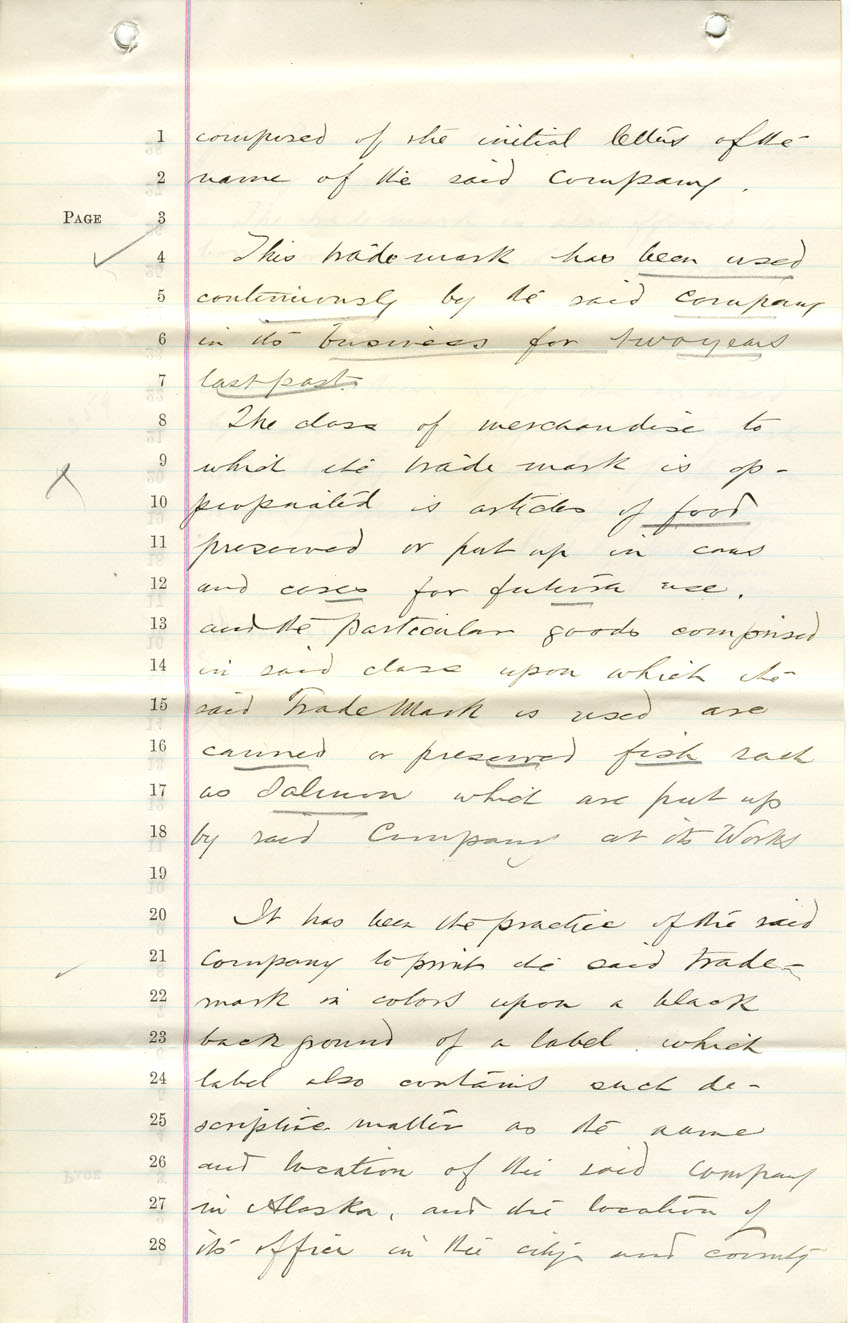 1 composed of the initial letters of the
2 name of the said Company.
PAGE 3
4 This trade mark has been used
5 continuously by the said company
6 in its business for two years
7 last past.
8 The class of merchandise to
9 which the trade mark is ap-
10 propriated is articles of food
11 preserved or put up in cans
12 and cases for future use,
13 and the particular goods comprised
14 in said class upon which the
15 said Trade Mark is used are
16 canned or preserved fish such
17 as Salmon which are put up
18 by said Company at its Works
19
20 It has been the practice of the said
21 Company to print the said trade-
22 mark in colors upon a black
23 back ground of a label which
24 label also contains such de-
25 scriptive matter as the name
26 and location of the said Company
27 in Alaska, and the location of
28 its office in the city and county